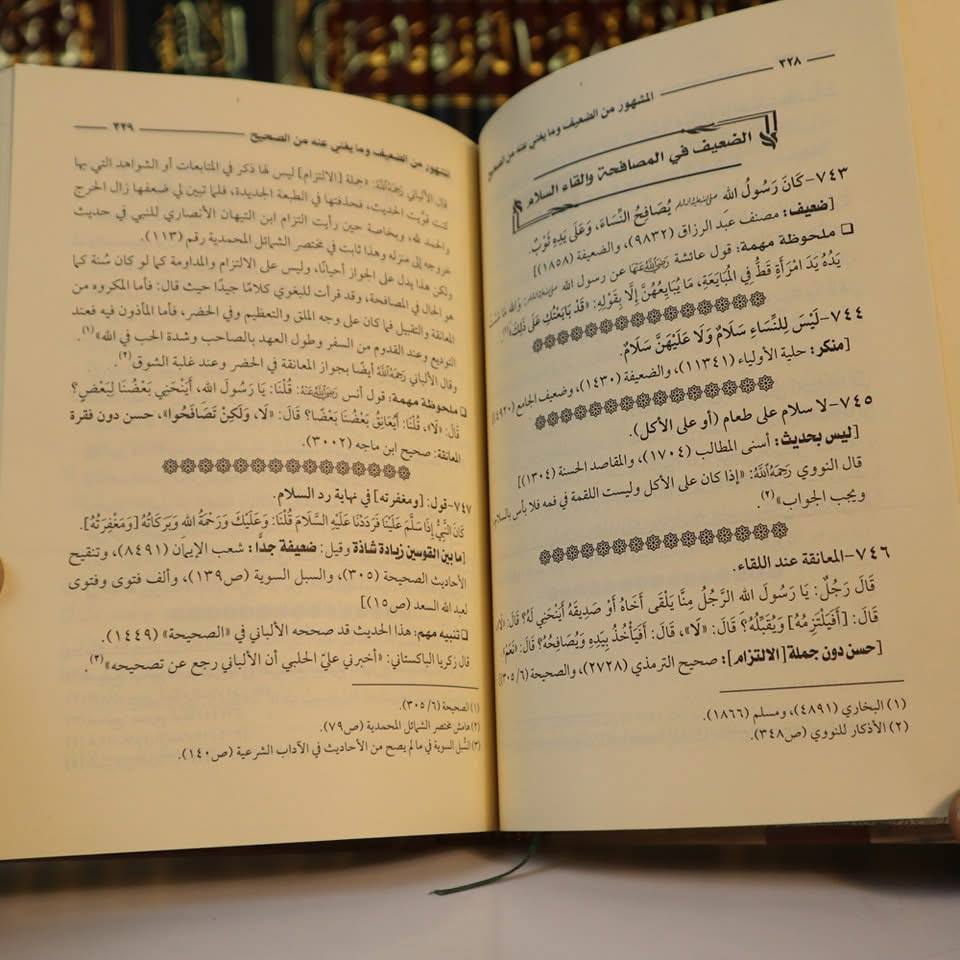 ٣٢٨
المشهور من الضعيف وما يغني عنه من الصحيح
الضعيف في المصافحة وإلقاء السلام
٧٤٣-كَانَ رَسُولُ الله ﷺ يُصَافِحُ النِّسَاءَ، وَعَلَى يَدِهِ ثَوْبٌ.
[ضعيف: مصنف عبد الرزاق (٩٨٣٢)، والضعيفة (١٨٥٨)]
❑ ملحوظة مهمة: قول عائشة رَضِيَ اللهُ عَنْهَا عن رسول الله ﷺ: والله مَا مَسَّتْ
يَدُهُ يَدَ امْرَأَةٍ قَطُّ فِي الْمُبَايَعَةِ، مَا يُبَايِعُهُنَّ إِلَّا بِقَوْلِهِ: «قَدْ بَايَعْتُكِ عَلَى ذَلِكَ»(١).
٧٤٤-لَيْسَ لِلنِّسَاءِ سَلَامٌ وَلَا عَلَيْهِنَّ سَلَامٌ.
[منكر: حلية الأولياء (١١٣٤١)، والضعيفة (١٤٣٠)، وضعيف الجامع (٤٩٢٠)]
٧٤٥-لا سلام على طعام (أو على الأكل).
[ليس بحديث: أسنى المطالب (١٧٠٤)، والمقاصد الحسنة (١٣٠٤)]
قال النووي رَحِمَهُ اللهُ: «إذا كان على الأكل وليست اللقمة في فمه فلا بأس بالسلام
ويجب الجواب»(٢).
٧٤٦-المعانقة عند اللقاء.
قَالَ رَجُلٌ: يَا رَسُولَ الله الرَّجُلُ مِنَّا يَلْقَى أَخَاهُ أَوْ صَدِيقَهُ أَيَنْحَنِي لَهُ؟ قَالَ: «لَا»
قَالَ: [أَفَيَلْتَزِمُهُ] وَيُقَبِّلُهُ؟ قَالَ: «لَا»، قَالَ: أَفَيَأْخُذُ بِيَدِهِ وَيُصَافِحُهُ؟ قَالَ: «نَعَمْ».
[حسن دون جملة [الالتزام]: صحيح الترمذي (٢٧٢٨)، والصحيحة (٦/ ٣٠٥)]
(١) البخاري (٤٨٩١)، ومسلم (١٨٦٦).
(٢) الأذكار للنووي (ص٣٤٨).
المشهور من الضعيف وما يغني عنه من الصحيح
٣٢٩
قال الألباني رَحِمَهُ اللهُ: «جملة [الالتزام] ليس لها ذكر في المتابعات أو الشواهد التي بها
كنت قوَّيت الحديث، فحذفتها في الطبعة الجديدة، فلما تبين لي ضعفها زال الحرج
والحمد لله، وبخاصة حين رأيت التزام ابن التيهان الأنصاري للنبي في حديث
خروجه إلى منزله وهذا ثابت في مختصر الشمائل المحمدية رقم (١١٣).
ولكن هذا يدل على الجواز أحيانًا، وليس على الالتزام والمداومة كما لو كان سُنة كما
هو الحال في المصافحة، وقد قرأت للبغوي كلامًا جيدًا حيث قال: فأما المكروه من
المعانقة والتقبيل فما كان على وجه الملق والتعظيم وفي الحضر، فأما المأذون فيه فعند
التوديع وعند القدوم من السفر وطول العهد بالصاحب وشدة الحب في الله»(١).
وقال الألباني رَحِمَهُ اللهُ أيضًا بجواز المعانقة في الحضر وعند غلبة الشوق(٢).
❑ ملحوظة مهمة: قول أنس رَضِيَ اللهُ عَنْهُ: قُلْنَا: يَا رَسُولَ الله، أَيَنْحَنِي بَعْضُنَا لِبَعْضٍ؟
قَالَ: «لَا»، قُلْنَا: أَيُعَانِقُ بَعْضُنَا بَعْضًا؟ قَالَ: «لَا، وَلَكِنْ تَصَافَحُوا»، حسن دون فقرة
المعانقة: صحيح ابن ماجه (٣٠٠٢).
٧٤٧-قول: [ومغفرته] في نهاية رد السلام.
كَانَ النَّبِيُّ إِذَا سَلَّمَ عَلَيْنَا فَرَدَدْنَا عَلَيْهِ السَّلَامَ قُلْنَا: وَعَلَيْكَ وَرَحْمَةُ الله وَبَرَكَاتُهُ [وَمَغْفِرَتُهُ].
[ما بين القوسين زيادة شاذة وقيل: ضعيفة جدًّا: شعب الإيمان (٨٤٩١)، وتنقيح
الأحاديث الصحيحة (٣٠٥)، والسبل السوية (ص١٣٩)، وألف فتوى وفتوى
لعبد الله السعد (ص١٥)]
❑ تنبيه مهم: هذا الحديث قد صححه الألباني في «الصحيحة» (١٤٤٩).
قال زكريا الباكستاني: «أخبرني عليّ الحلبي أن الألباني رجع عن تصحيحه»(٣).
(١) الصحيحة (٦/ ٣٠٥).
(٢) هامش مختصر الشمائل المحمدية (ص٧٩).
(٣) السُّبل السوية في ما لم يصح من الأحاديث في الآداب الشرعية (ص١٤٠).